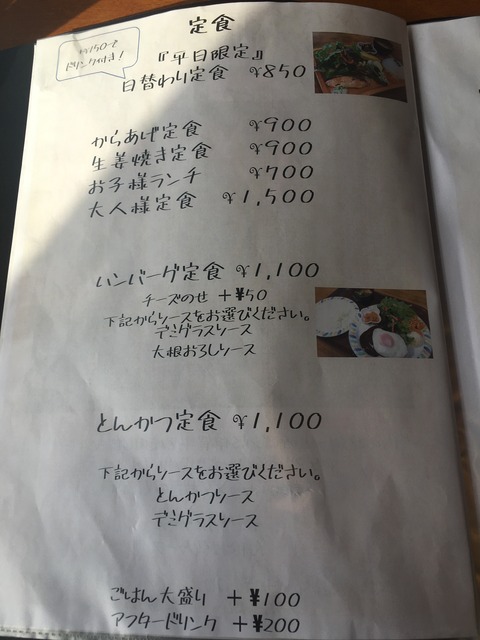 定食
+¥150で
ドリンク付き!
『平日限定』
日替わり定食 ¥850
からあげ定食 ¥900
生姜焼き定食 ¥900
お子様ランチ ¥700
大人様定食 ¥1,500
ハンバーグ定食 ¥1,100
チーズのせ +¥50
下記からソースをお選びください。
デミグラスソース
大根おろしソース
とんかつ定食 ¥1,100
下記からソースをお選びください。
とんかつソース
デミグラスソース
ごはん大盛り +¥100
アフタードリンク +¥200